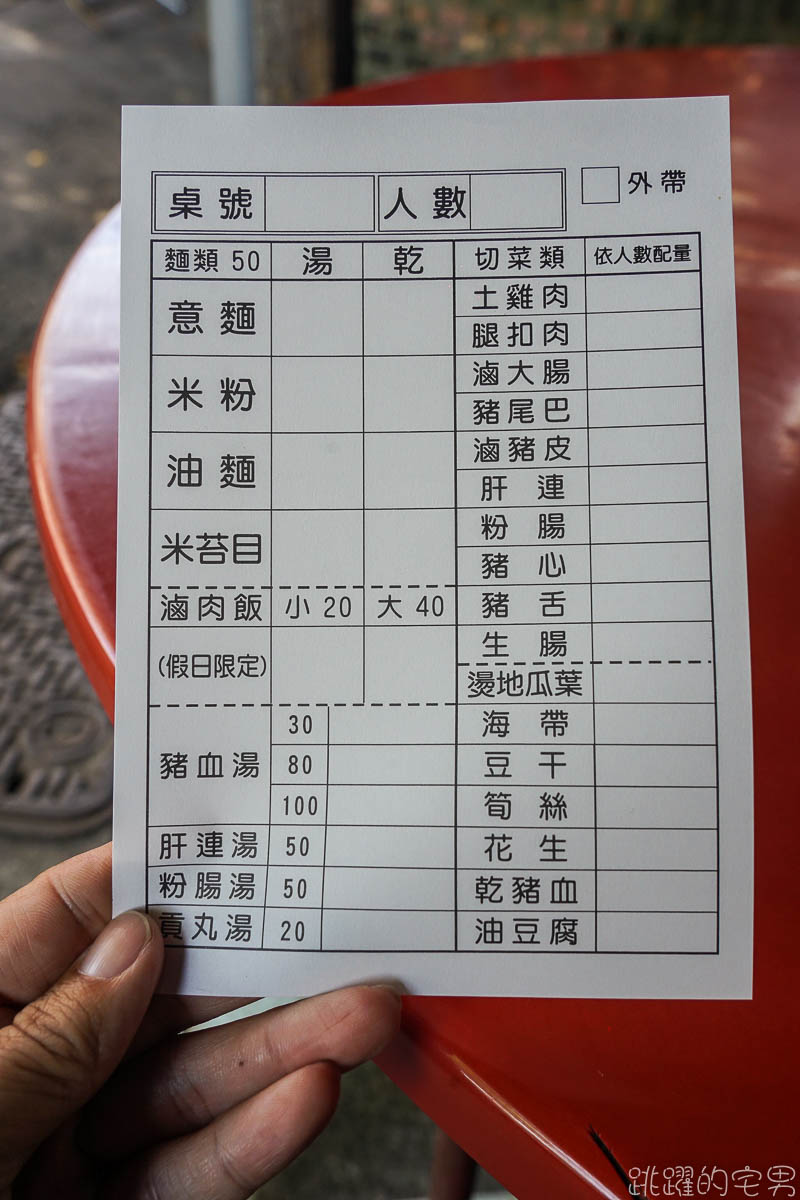 桌號 人數 外帶
麵類 50 湯 乾 切菜類 依人數配量
意麵
米粉
油麵
米苔目
滷肉飯 小 20 大 40
(假日限定)
豬血湯 30
80
100
肝連湯 50
粉腸湯 50
貢丸湯 20
土雞肉
腿扣肉
滷大腸
豬尾巴
滷豬皮
肝連
粉腸
豬心
豬舌
生腸
燙地瓜葉
海帶
豆干
筍絲
花生
乾豬血
油豆腐
跳躍的宅男